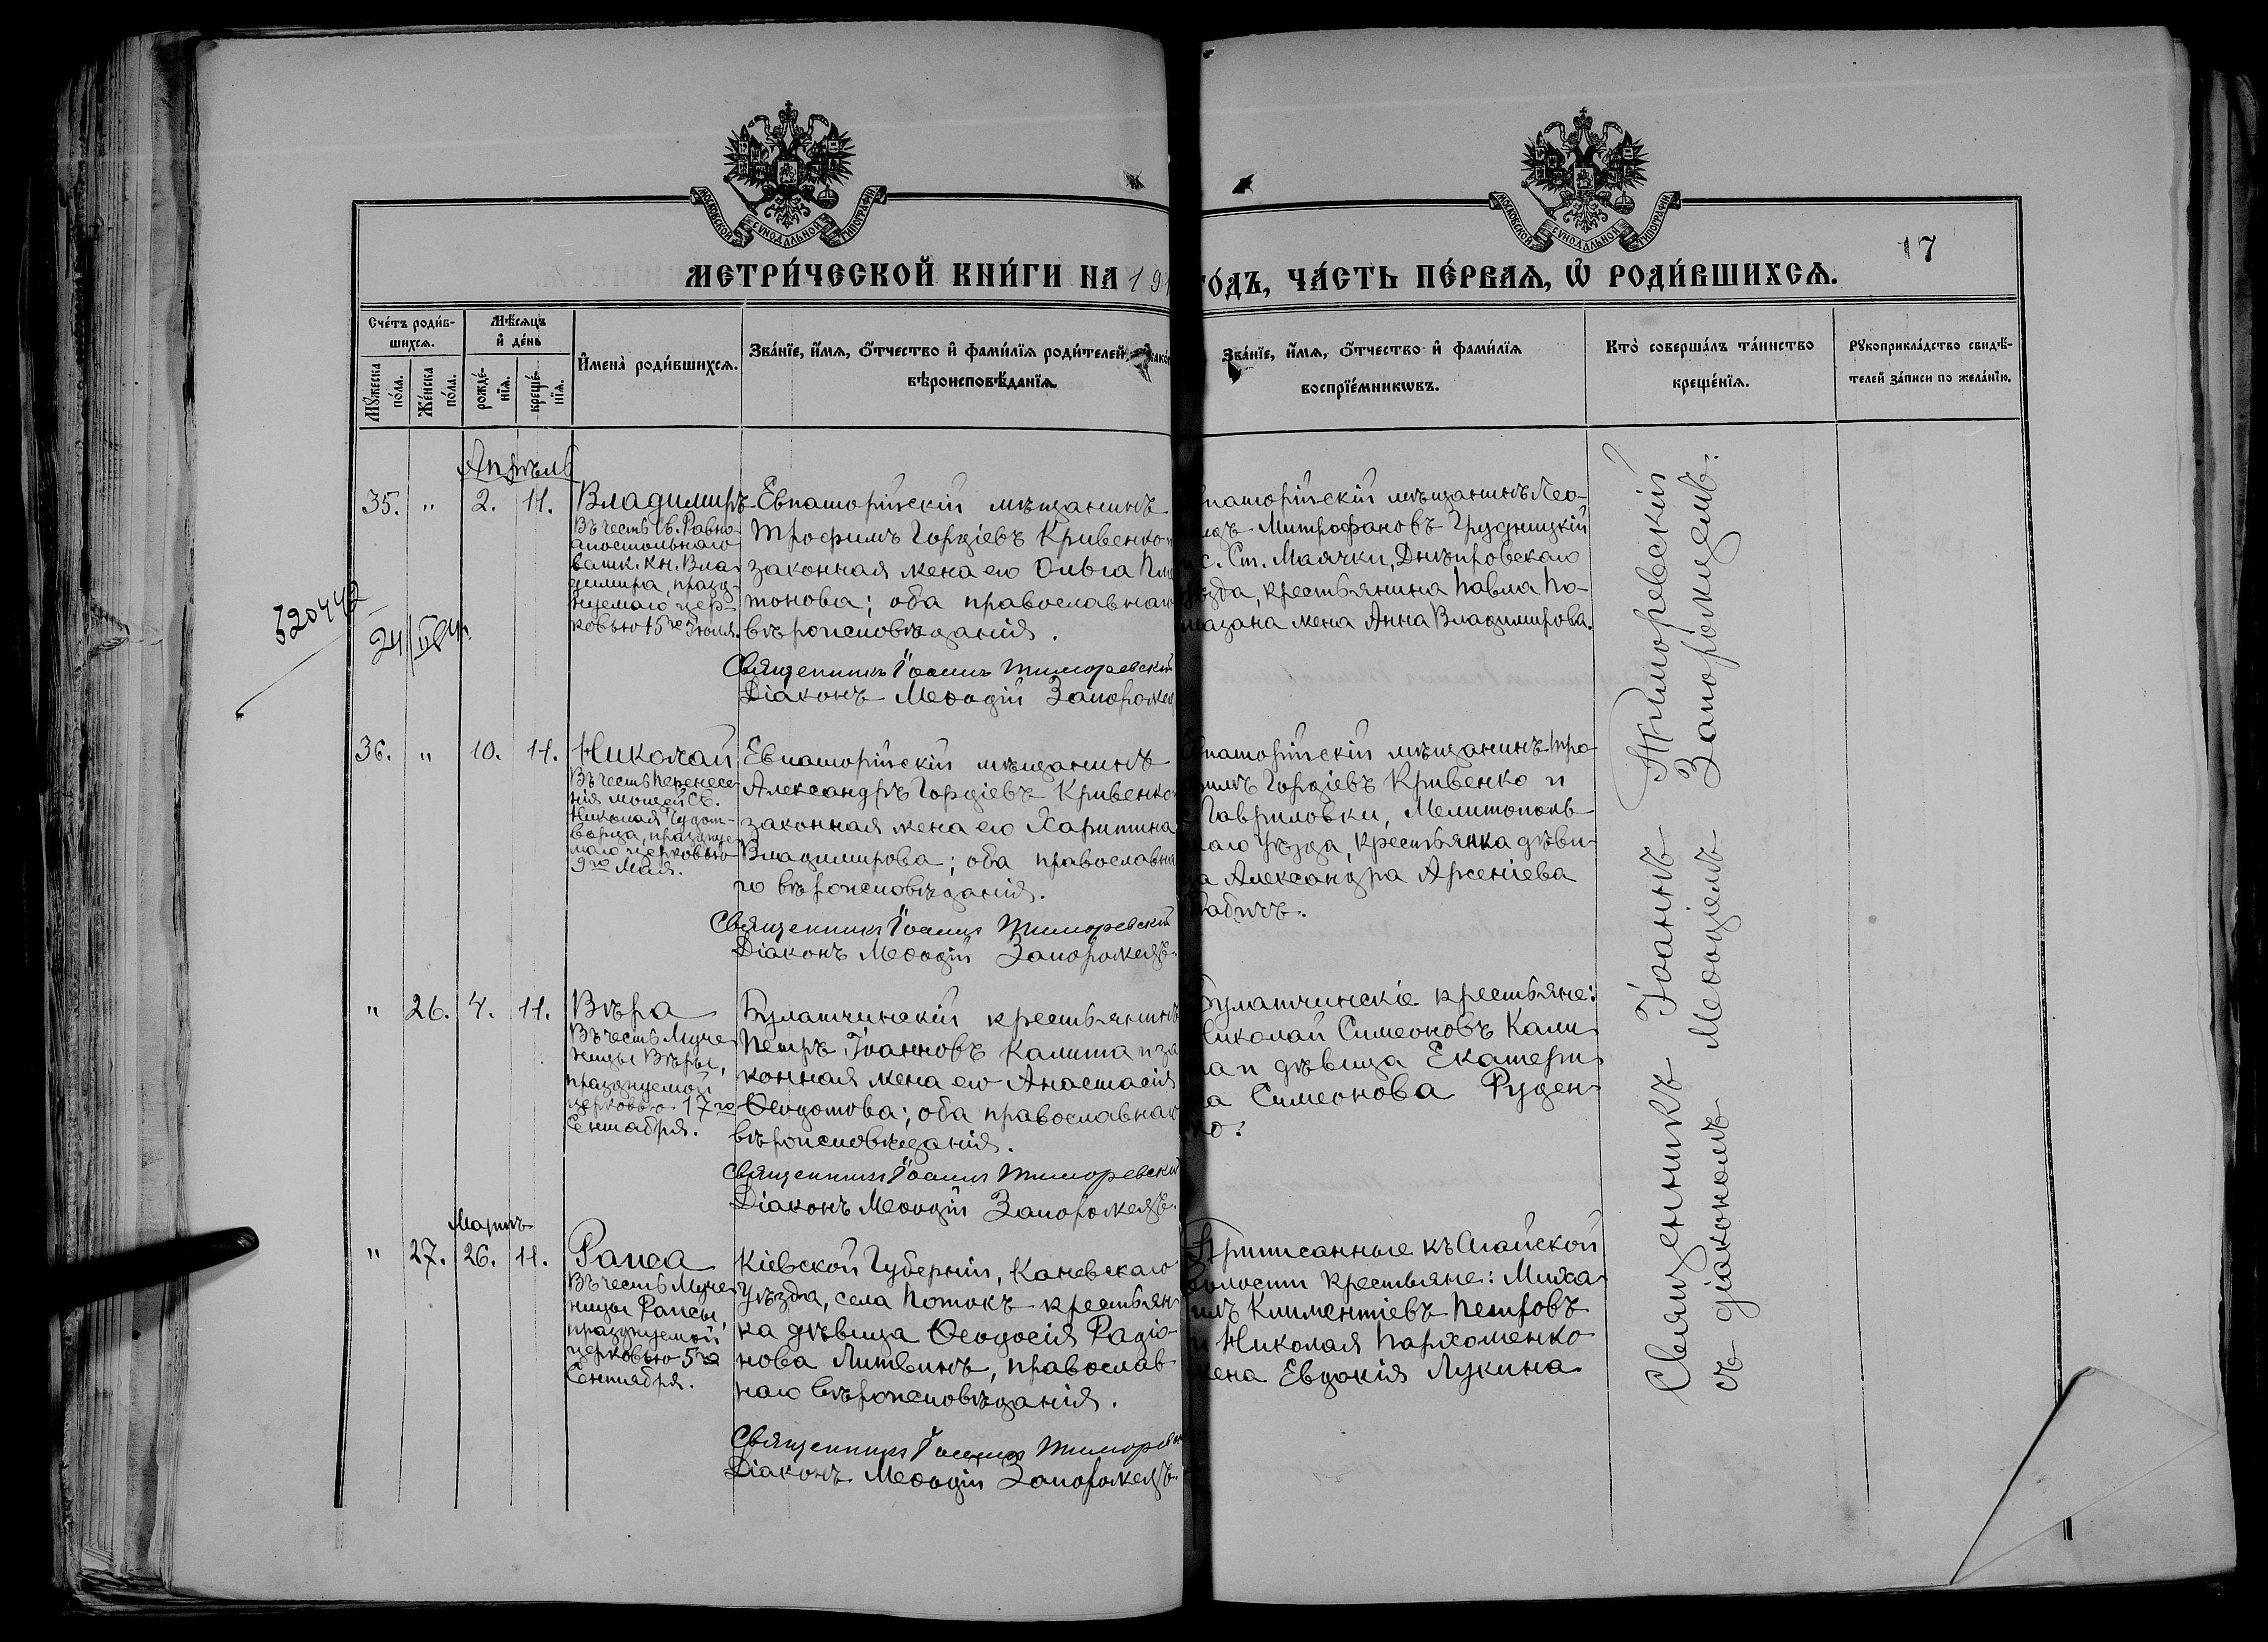 МОСКОВСКОЙ СѴНОДАЛЬНОЙ ТИПОГРАФІИ
МОСКОВСКОЙ СѴНОДАЛЬНОЙ ТИПОГРАФІИ
17
МЕТРИ́ЧЕСКОЙ КНИ́ГИ НА 191
ГО́ДЪ, ЧА́СТЬ ПЕ́РВАѦ, Ѽ РОДИ́ВШИХСѦ.
Сче́тъ роди́в-
шихсѧ.
Мꙋ́жеска по́ла.
Же́нска по́ла.
Мѣ́сѧцъ
и҆ де́нь
рожде́-
нїѧ.
креще́-
нїѧ.
И҆мена̀ роди́вшихсѧ.
Зва́нїе, и҆́мѧ, ѻ҆́тчество и҆ фами́лїѧ роди́телей,
вѣроисповѣ́данїѧ.
Зва́нїе, и҆́мѧ, ѻ҆́тчество и҆ фами́лїѧ
воспрїе́мникѡвъ.
Кто̀ соверша́лъ та́инство
креще́нїѧ.
Рꙋкоприкла́дство свидѣ́-
телей за́писи по жела́нїю.
Апрѣль
35. " 2. 11.
Владимиръ
Въ честь Св. Равно-
апостольнаго
велик. кн. Вла-
димира, празд-
нуемаго цер-
ковью 15го Іюля.
Евпаторійскій мѣщанинъ
Трофимъ Гордіевъ Кривенко и
законная жена его Ольга Пла
тонова; оба православнаго
вѣроисповѣданія.
Священникъ Іоаннъ Тиморевскій
Діаконъ Меѳодій Запорожец
впаторійскій мѣщанинъ Лео-
идъ Митрофановъ Грудницкій
с. Ст. Маячки, Днѣпровскаго
ѣзда, крестьянина Павла По-
мазана жена Анна Владимирова.
620442
24
36. " 10. 11.
Николай
Въ честь перенесе-
нія мощей Св.
Николая Чудот-
ворца, празднуе-
маго церковью
9го Мая.
Евпаторійскій мѣщанинъ
Александръ Гордіевъ Кривенко
законная жена его Харитина
Владимирова; оба православна
го вѣроисповѣданія.
Священникъ Іоаннъ Тиморевскій
Діаконъ Меѳодій Запорожецъ.
Евпаторійскій мѣщанинъ Тро-
фимъ Гордіевъ Кривенко и
Гавриловки, Мелитополь-
скаго Уѣзда, крестьянка дѣви-
ца Александра Арсеніева
Бабичъ.
" 26. 4. 11.
Вѣра
Въ честь Муче-
ницы Вѣры,
празднуемой
церковью 17го
Сентября.
Булатчинскій крестьянинъ
Петръ Іоанновъ Калита и за
конная жена его Анастасія
Ѳеодотова; оба православнаго
вѣроисповѣданія.
Священникъ Іоаннъ Тиморевскій
Діаконъ Меѳодій Запорожецъ.
Булатчинскіе крестьяне:
Николай Симеоновъ Кали
та и дѣвица Екатери
на Симеонова Руден-
ко.
Мартъ
" 27. 26. 11.
Раиса
Въ честь Муче-
ницы Раисы,
празднуемой
церковью 5го
Сентября.
Кіевской Губерніи, Каневскаго
Уѣзда, села Потокъ крестьян
ка дѣвица Ѳеодосія Радіо-
нова Литвинъ, православ
наго вѣроисповѣданія.
Священникъ Іоаннъ Тиморевск
Діаконъ Меѳодій Запорожецъ.
Приписанные къ Агайской
волости крестьяне: Миха-
илъ Климентіевъ Петровъ
и Николая Пархоменко
жена Евдокія Лукина
Священникъ Іоаннъ Тиморевскій
съ діакономъ Меѳодіемъ Запорожцемъ.